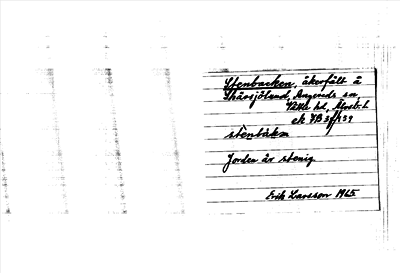 Stenbacken, åkerfält å
Skärsjölund, Angereds sn,
Vättle hd, Älvsb. l.
ek YB 31/139
stenbakn
Jorden är stenig
Erik Larsson 1965